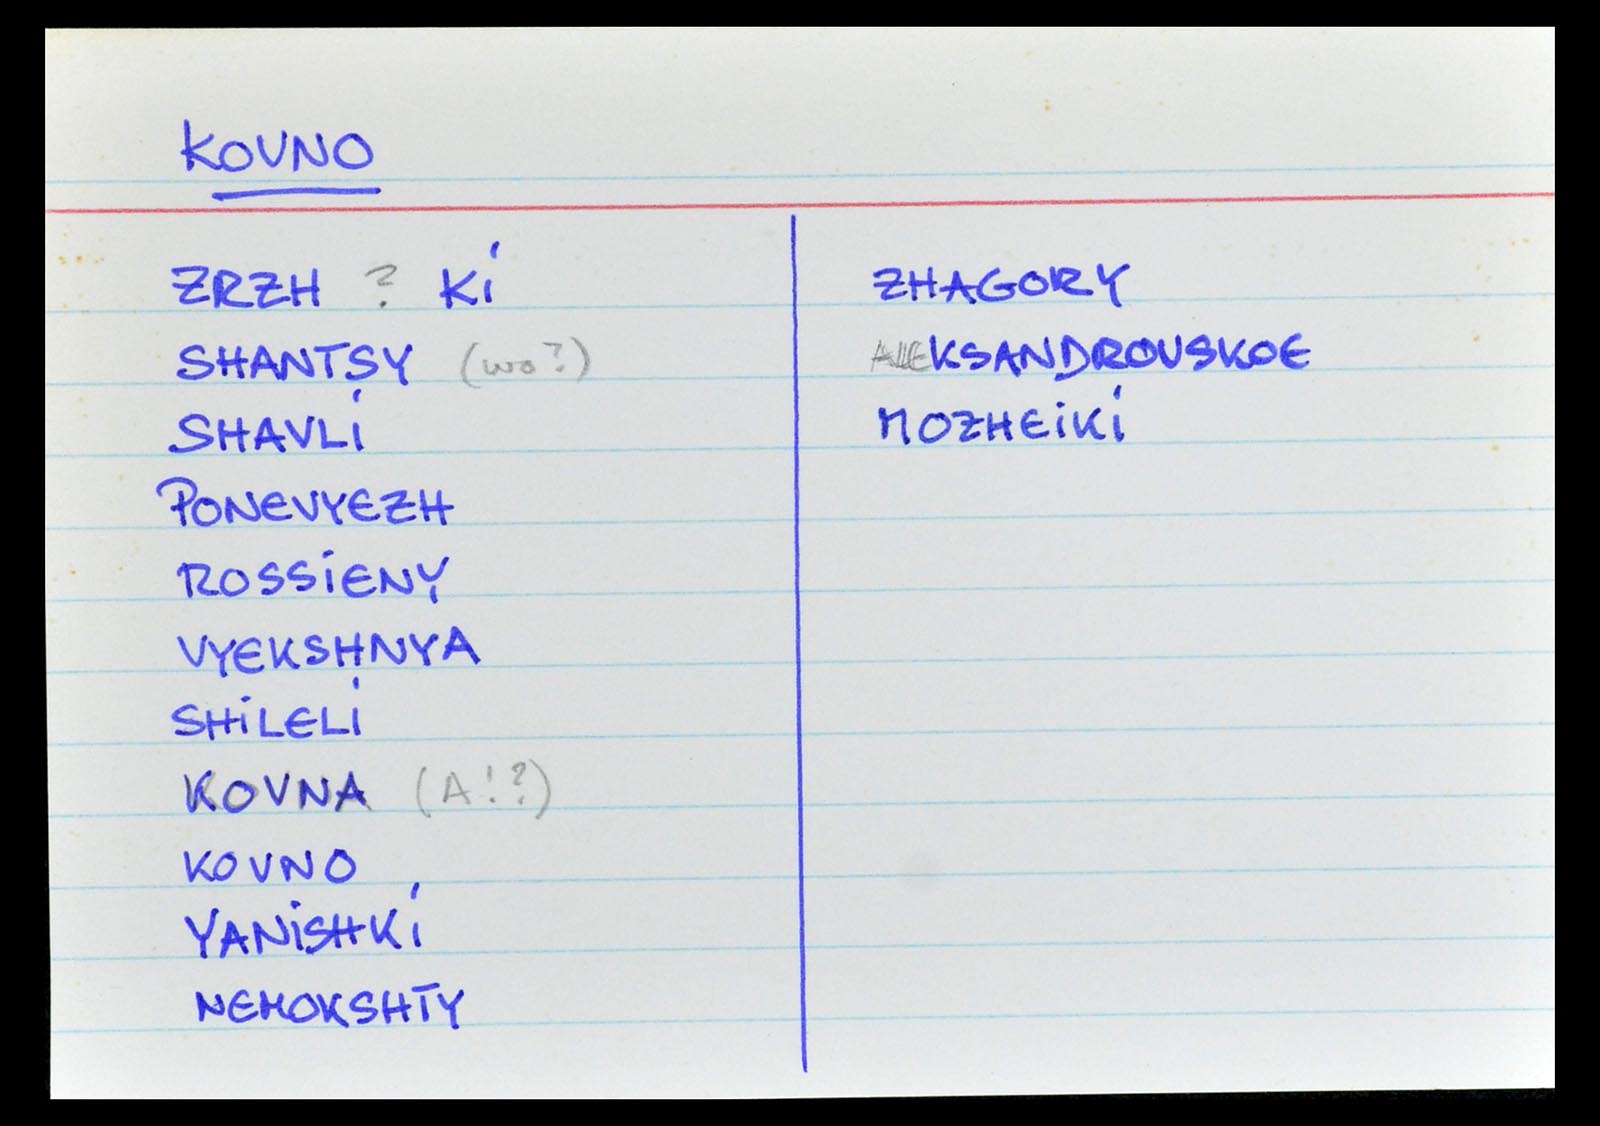 KOVNO
ZRZH ? KI
SHANTSY (wo?)
SHAVLI
PONEVYEZH
ROSSIENY
VYEKSHNYA
SHILELI
KOVNA (A!?)
KOVNO
YANISHKI
NEMOKSHTY
ZHAGORY
ALEKSANDROVSKOE
MOZHEIKI